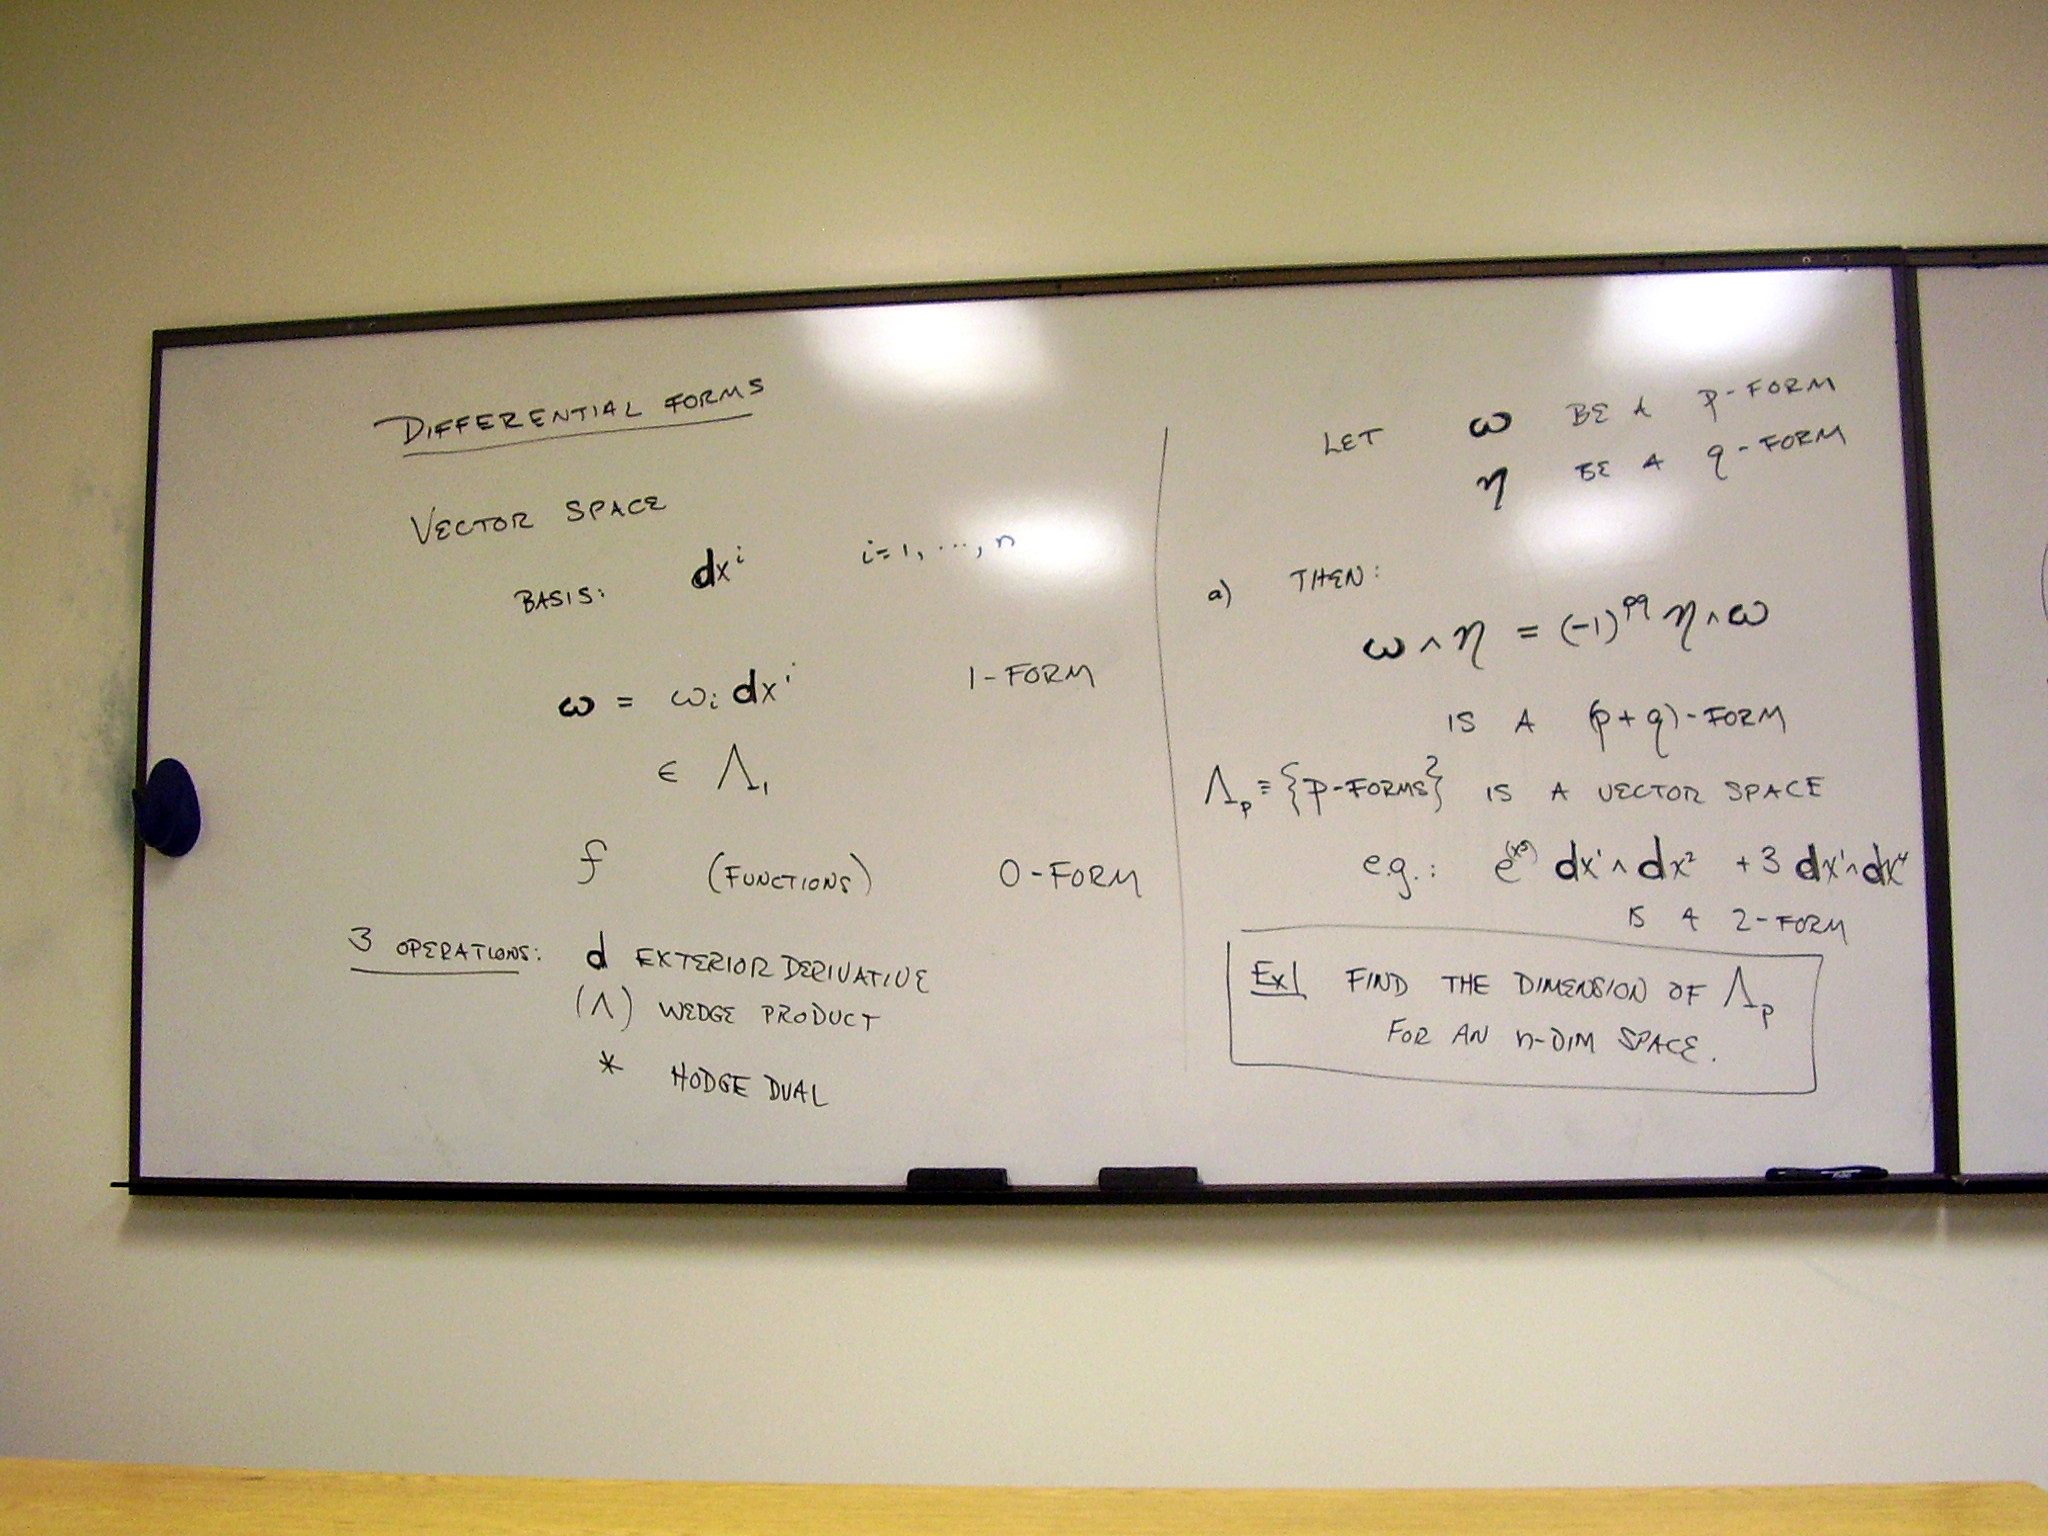 DIFFERENTIAL FORMS
VECTOR SPACE
BASIS: dxⁱ i=1, ..., n
ω = ωᵢ dxⁱ 1-FORM
∈ Λ₁
f (FUNCTIONS) 0-FORM
3 OPERATIONS: d EXTERIOR DERIVATIVE
(∧) WEDGE PRODUCT
* HODGE DUAL
LET ω BE A p-FORM
η BE A q-FORM
a) THEN:
ω ∧ η = (-1)^pq η ∧ ω
IS A (p+q)-FORM
Λₚ ≡ {p-FORMS} IS A VECTOR SPACE
e.g.: dx¹ ∧ dx² + 3 dx¹ ∧ dx⁴
IS A 2-FORM
Ex1 FIND THE DIMENSION OF Λₚ
FOR AN n-DIM SPACE.